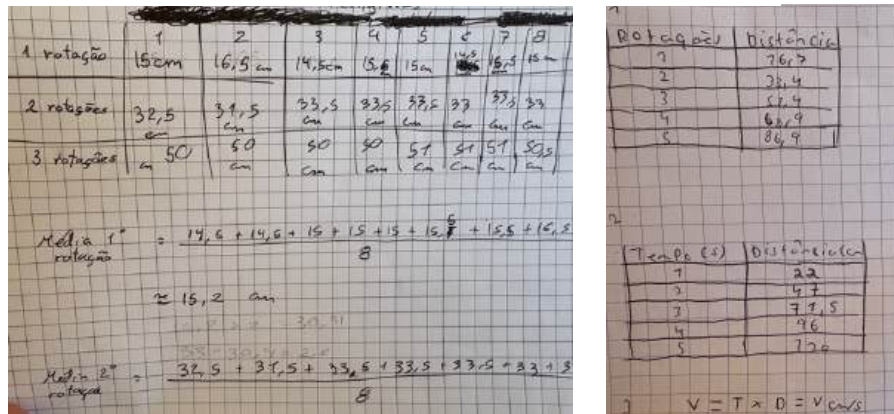 1 2 3 4 5 6 7 8
1 rotação 15cm 16,5 cm 14,5cm 15,5 15cm 14,5 15,5 15cm
2 rotações 32,5 cm 31,5 cm 33,5 cm 33,5 cm 33,5 cm 33 cm 33,5 cm 33 cm
3 rotações 50 cm 50 cm 50 cm 50 cm 51 cm 51 cm 51 cm 50,5 cm
Média 1ª rotação = 14,5 + 14,5 + 15 + 15 + 15 + 15,5 + 15,5 + 16,5
8
≈ 15,2 cm
Média 2ª rotação = 32,5 + 31,5 + 33,5 + 33,5 + 33,5 + 33 + 3
8
Rotações Distância
1
2 33,4
3
4
5 86,9
2
Tempo (s) Distância(cm
1 22
2 47
3 71,5
4 96
5 120
3 V = T x D = V cm/s